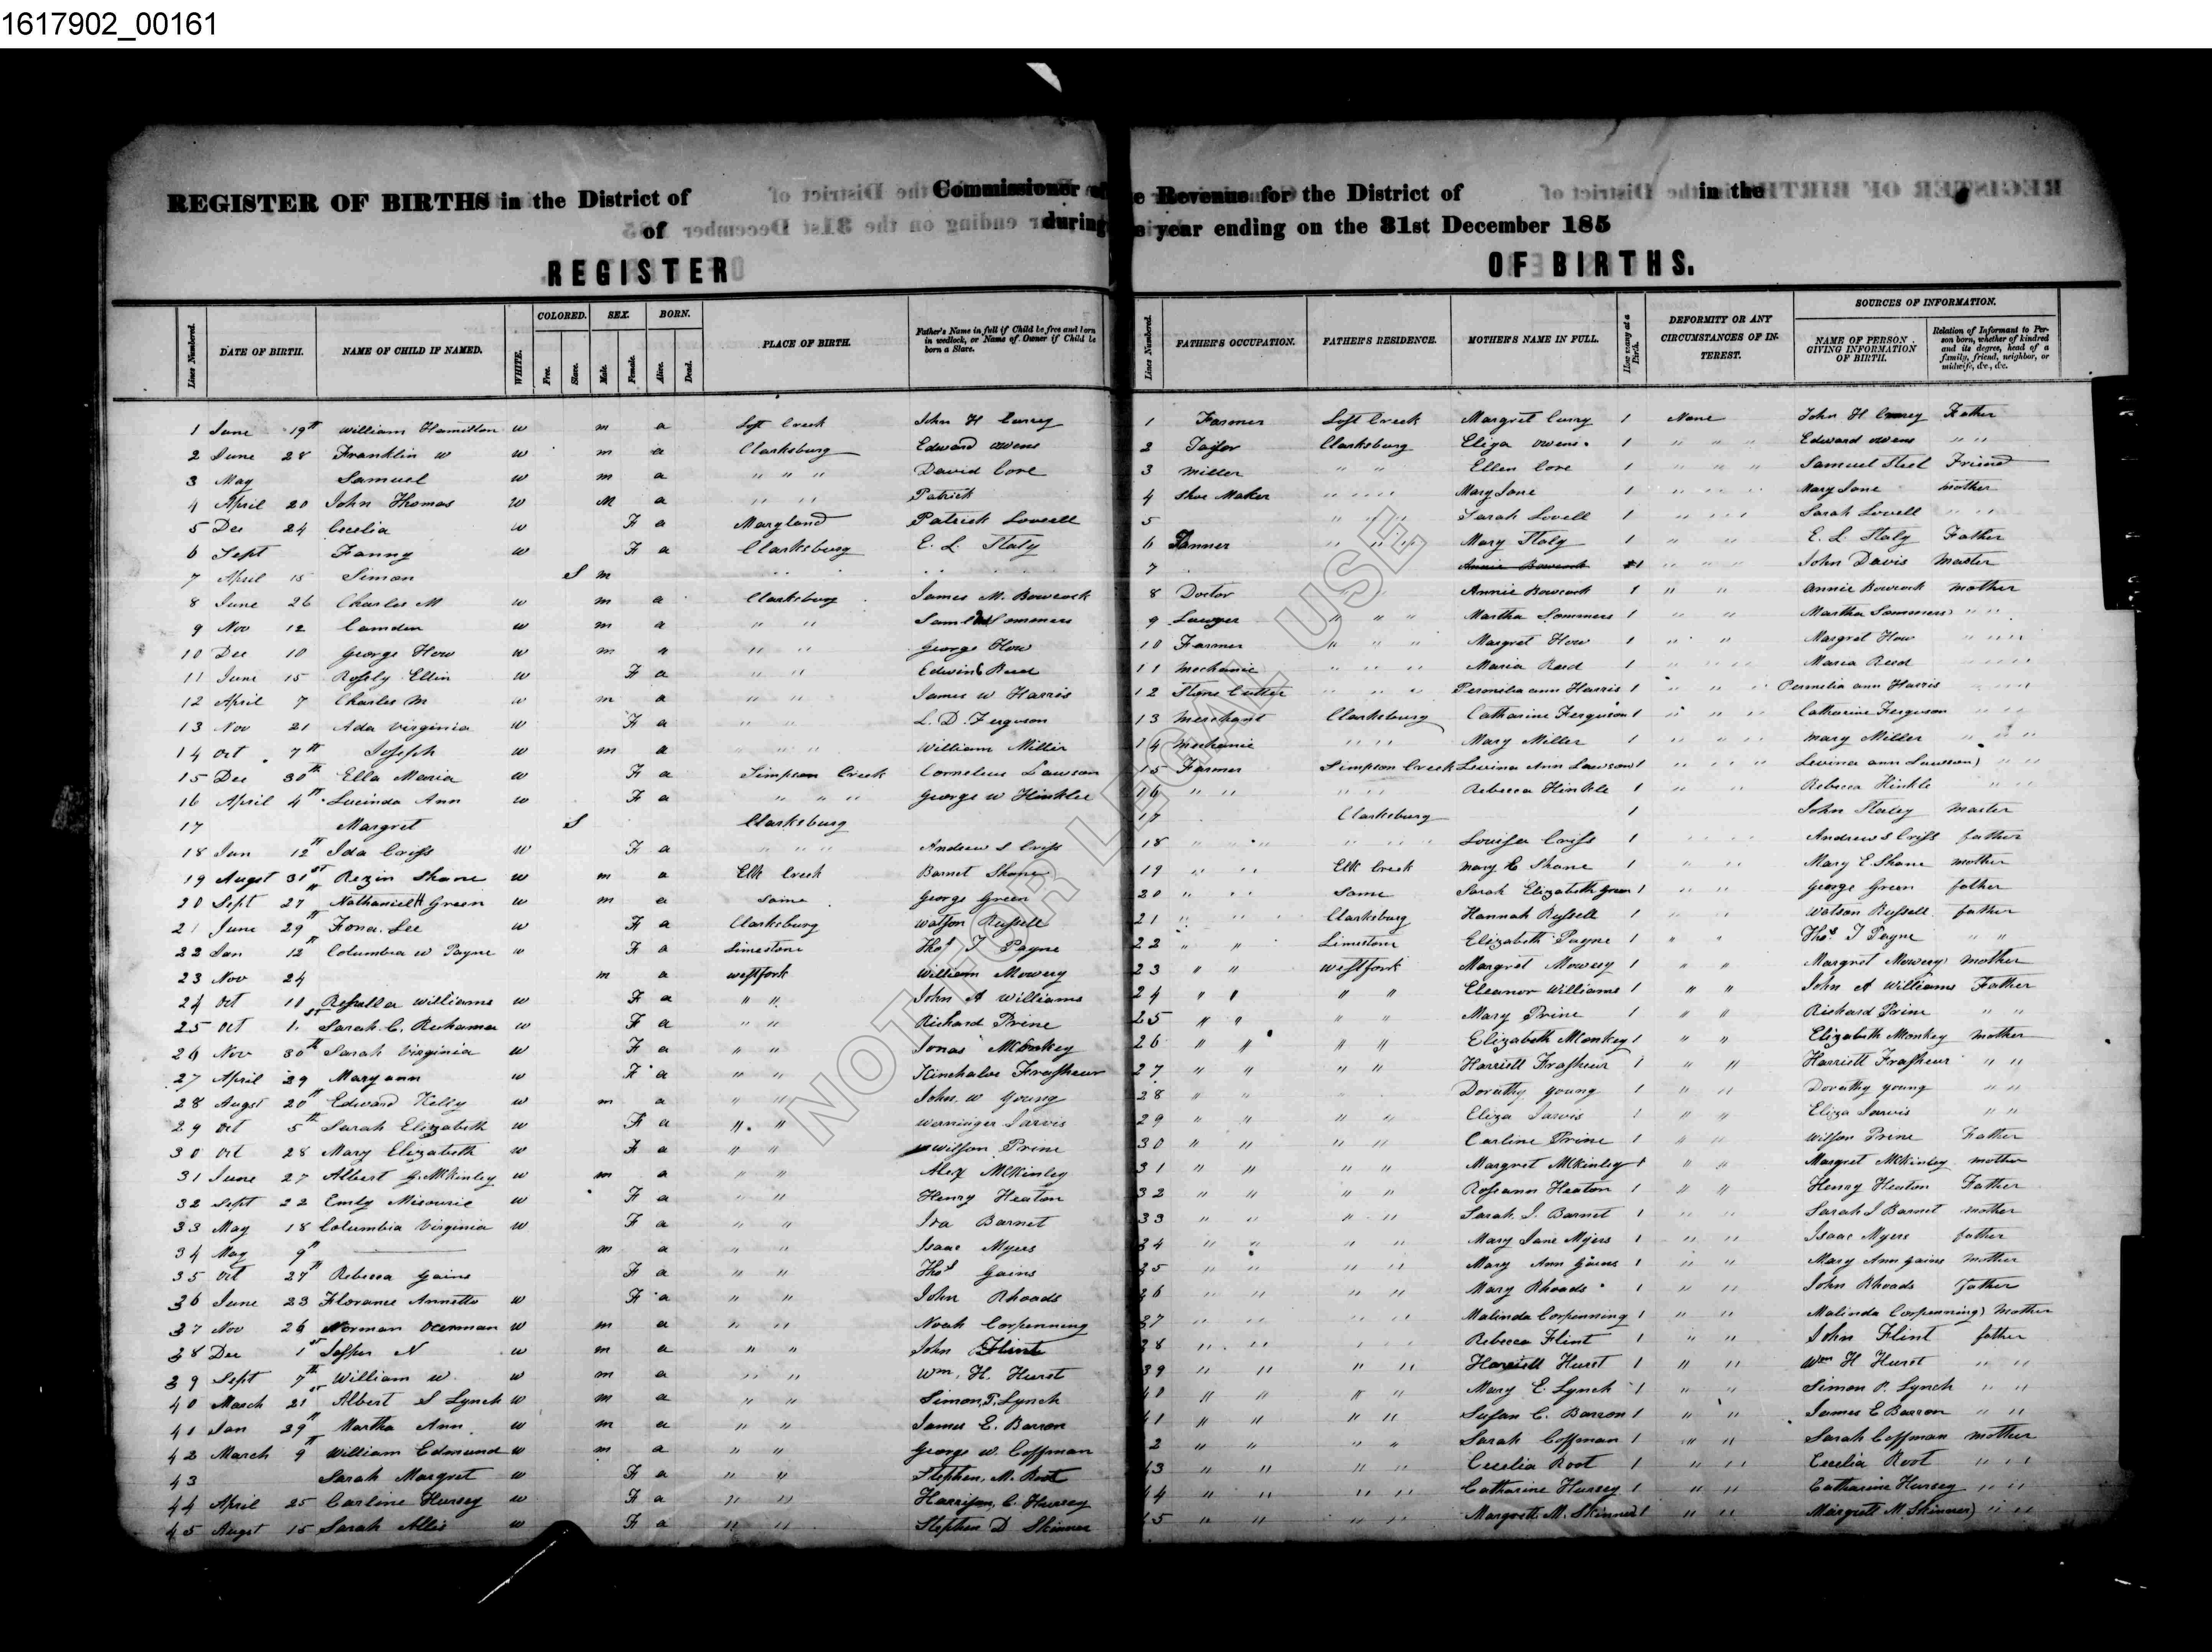 1617902_00161
REGISTER OF BIRTHS in the District of Commissioner of e Revenue for the District of in the
of during e year ending on the 31st December 185
REGISTER OF BIRTHS.
Lines Numbered. DATE OF BIRTH. NAME OF CHILD IF NAMED. WHITE. COLORED. Free. Slave. SEX. Male. Female. BORN. Alive. Dead. PLACE OF BIRTH. Father's Name in full if Child be free and born in wedlock, or Name of Owner if Child be born a Slave. Lines Numbered. FATHER'S OCCUPATION. FATHER'S RESIDENCE. MOTHER'S NAME IN FULL. How many at a Birth. DEFORMITY OR ANY CIRCUMSTANCES OF INTEREST. SOURCES OF INFORMATION. NAME OF PERSON GIVING INFORMATION OF BIRTH. Relation of Informant to Person born, whether of kindred and its degree, head of a family, friend, neighbor, or midwife, &c., &c.
1 June 19th William Hamilton w m a Loft Creek John H Curry 1 Farmer Loft Creek Margret Curry 1 None John H Father
2 June 28 Franklin W w m a Clarksburg Edward Owens 2 Taylor Clarksburg Eliza Owens 1 " " " Edward Owens " "
3 May Samuel w m a " " " David Core 3 Miller " " Ellen Core 1 " " " Samuel Steel Friend
4 April 20 John Thomas w M a " " Patrick 4 Shoe Maker " " " " Mary Jane 1 " " " " Mary Jane Mother
5 Dec 24 Cecelia w F a Maryland Patrick Lovell 5 " " " Sarah Lovell 1 " " " " Sarah Lovell " " "
6 Sept Fanny w F a Clarksburg E. L. Staly 6 Tanner " " " " Mary Staly 1 " " " E. L. Staly Father
7 April 15 Simon S m 7 Annie Bowcock 1 " " " " John Davis Master
8 June 26 Charles M w m a Clarksburg James M. Bowcock 8 Doctor Annie Bowcock 1 " " Annie Bowcock mother
9 Nov 12 Camden w m a " " Sommers 9 Lawyer " " " Martha Sommers 1 " " Martha Sommers " "
10 Dec 10 George How w m " " " George How 10 Farmer " " " Margret How 1 " " Margret How " " "
11 June 15 Rosely Ellin w F a " " Edwin Reed 11 Mechanic " " " Maria Reed 1 " " " " Maria Reed " " " "
12 April 7 Charles M w m a " " James W Harris 12 Stone Cutter " " " Permilia ann Harris 1 " " " Permelia ann Harris " " "
13 Nov 21 Ada Virginia w F a " " L. D. Ferguson 13 Merchant Clarksburg Catharine Ferguson 1 " " " Catharine Ferguson " "
14 Oct 7th Joseph w m a " " " William Miller 14 Mechanic " " " Mary Miller 1 " " " " Mary Miller " " "
15 Dec 30th Ella Maria w F a Simpson Creek Cornelius Lawson 15 Farmer Simpson Creek Levina Ann Lawson 1 " " " " Levina ann Lawson " "
16 April 4th Lucinda Ann w F a " " " George W Hinkle 16 " " " " " Rebecca Hinkle 1 " " Rebecca Hinkle " "
17 Margret S Clarksburg 17 Clarksburg 1 John Staley Master
18 Jan 12th Ida Criss w F a " " " Andrew S Criss 18 " " " " " " Louisa Criss 1 " " " Andrew S Criss father
19 Augst 31st Rezin Shane w m a Elk Creek Barnet Shane 19 " " " Elk Creek Mary E Shane 1 " " Mary E. Shane mother
20 Sept 27th Nathaniel H Green w m a Same George Green 20 " " " Same Sarah Elizabeth Green 1 " " George Green father
21 June 29th Fona Lee w F a Clarksburg Watson Russell 21 " " " Clarksburg Hannah Russell 1 " " Watson Russell father
22 Jan 12th Columbia W Payne w F a Limestone Thos J Payne 22 " " Limestone Elizabeth Payne 1 " " Thos J Payne " "
23 Nov 24 m a Westfork William Mowery 23 " " Westfork Margret Mowery 1 " " Margret Mowery mother
24 Oct 11 Williams w F a " " John A Williams 24 " " " " Eleanor Williams 1 " " John A Williams Father
25 Oct 1st Sarah C. Ruhama w F a " " Richard Prine 25 " " " " Mary Prine 1 " " Richard Prine " "
26 Nov 30th Sarah Virginia w F a " " Jonas 26 " " " " Elizabeth Monkey 1 " " Elizabeth Monkey mother
27 April 29 Mary ann w F a " " Frasheur 27 " " " " Harriett Frasheur 1 " " Harriett Frasheur " "
28 Augst 20th Edward Kelly w m a " " John W Young 28 " " Dorathy Young 1 " " Dorathy Young " "
29 Oct 5th Sarah Elizabeth w F a " " Werninger Jarvis 29 " " " " Eliza Jarvis 1 " " Eliza Jarvis " "
30 Oct 28 Mary Elizabeth w F a " " Wilson Prine 30 " " " " Carline Prine 1 " " Wilson Prine Father
31 June 27 Albert G. McKinley w m a " " Alex McKinley 31 " " " " Margret McKinley 1 " " Margret McKinley mother
32 Sept 22 Emily Missourie w F a " " Henry Heaton 32 " " " " Roseann Heaton 1 " " Henry Heaton Father
33 May 18 Columbia Virginia w F a " " Ira Barnet 33 " " " " Sarah J. Barnet 1 " " Sarah J Barnet mother
34 May 9th m a " " Isaac Myers 34 " " " " Mary Jane Myers 1 " " Isaac Myers father
35 Oct 27th Rebecca Gains F a " " Thos Gains 35 " " " " Mary Ann Gains 1 " " Mary Ann Gains mother
36 June 23 Florance Annette w F a " " John Rhoads 36 " " " " Mary Rhoads 1 " " John Rhoads father
37 Nov 26 Norman w m a " " Noah Corpenning 37 " " " " Malinda Corpenning 1 " " Malinda Corpenning mother
38 Dec 1st Jasper N w m a " " John Flint 38 " " " " Rebecca Flint 1 " " John Flint father
39 Sept 7th William W w m a " " Wm. H. Hurst 39 " " " " Harriett Hurst 1 " " Wm H Hurst " "
40 March 21st Albert S Lynch w m a " " Simon P. Lynch 40 " " " " Mary E. Lynch 1 " " Simon P. Lynch " "
41 Jan 29th Martha Ann w m a " " James E. Barron 41 " " " " Susan C. Barron 1 " " James E Barron " "
42 March 9th William Edmund w m a " " George W. Coffman 2 " " " " Sarah Coffman 1 " " Sarah Coffman mother
43 Sarah Margret w F a " " Stephen M. Root 43 " " " " Cecelia Root 1 " " Cecelia Root " "
44 April 25 Carline Hursey w F a " " Harrison C. Hursey 44 " " " " Catharine Hursey 1 " " Catharine Hursey " "
45 Augst 15 Sarah Allis w F a " " Stephen D Skinner 45 " " " " Margrett M. Skinner 1 " " Margrett M Skinner " "
NOT FOR LEGAL USE